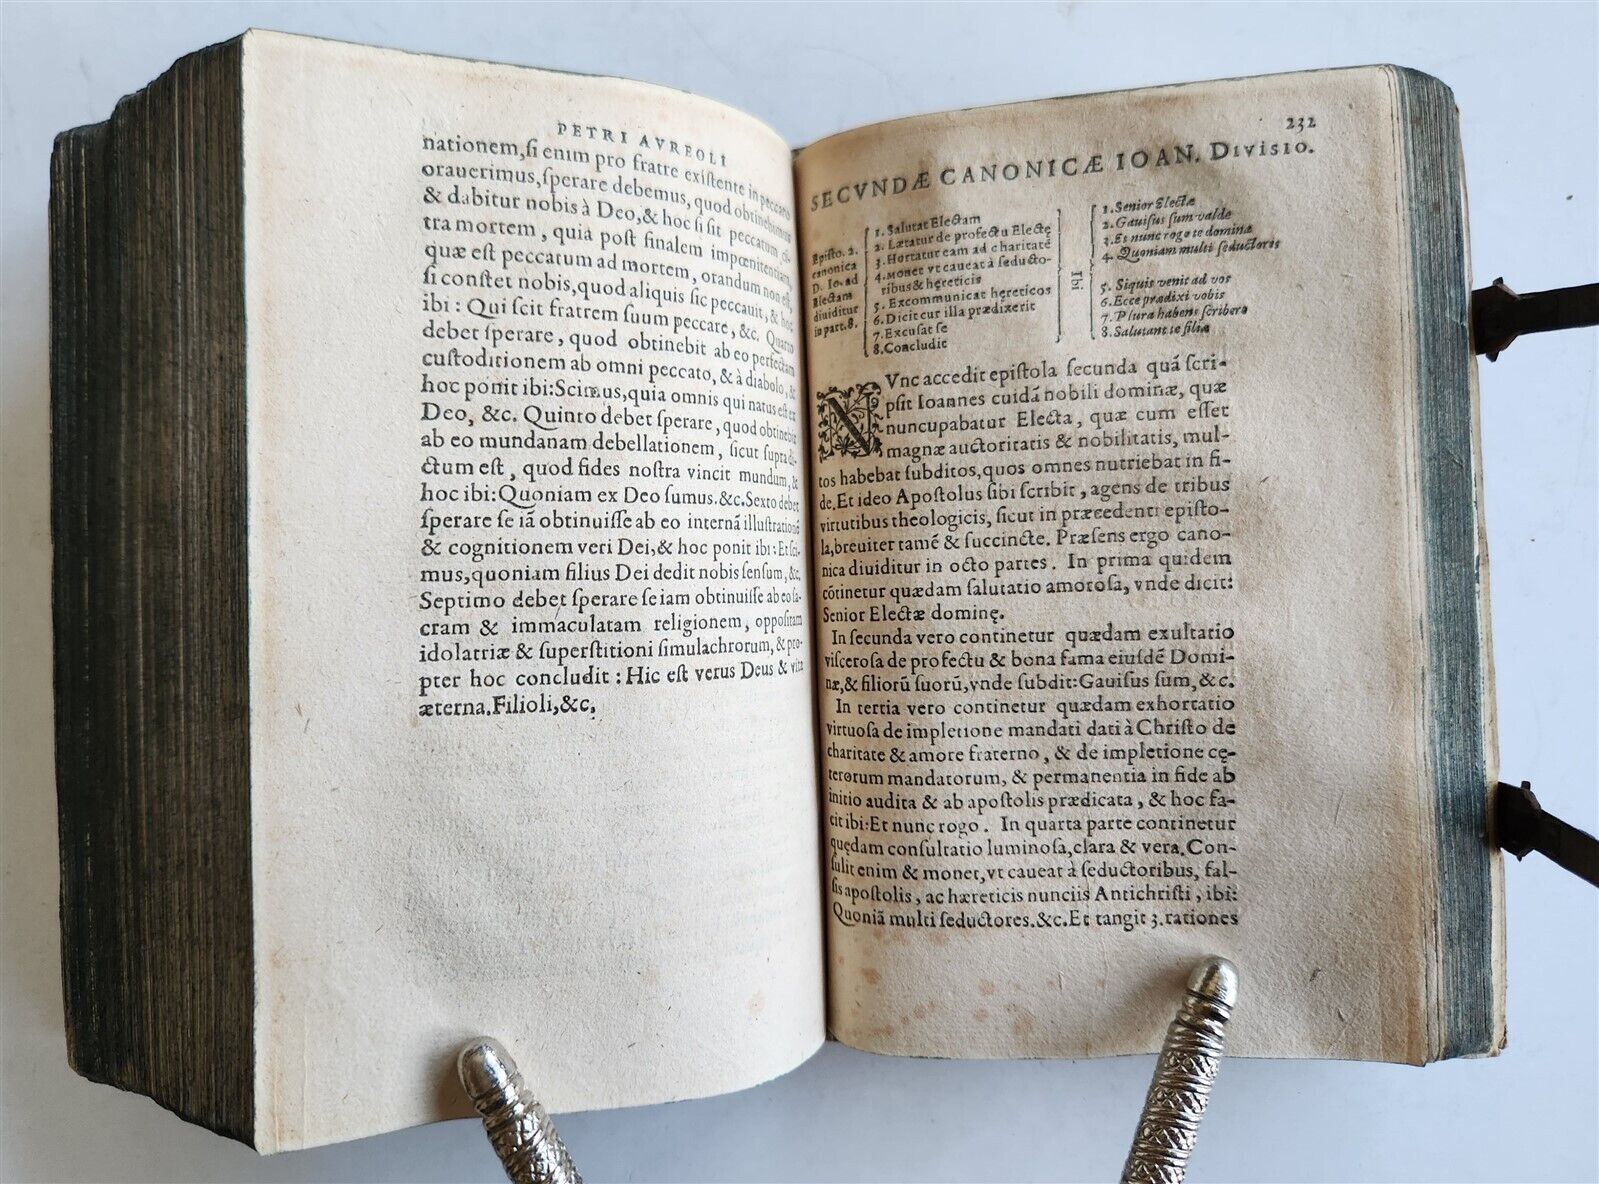 PETRI AVREOLI
nationem,ſi enim pro fratre exiſtente in peccato
orauerimus,ſperare debemus, quod obtinebimus
& dabitur nobis à Deo,& hoc ſi ſit peccatum ci-
tra mortem, quia poſt finalem impœnitentiam,
quæ eſt peccatum ad mortem, orandum non eſt,
ſi conſtet nobis,quod aliquis ſic peccauit, & hoc
ibi: Qui ſcit fratrem ſuum peccare, &c. Quarto
debet ſperare, quod obtinebit ab eo perfectam
cuſtoditionem ab omni peccato, & à diabolo, &
hoc ponit ibi:Scimus,quia omnis qui natus eſt ex
Deo, &c. Quinto debet ſperare, quod obtinebit
ab eo mundanam debellationem, ſicut ſupra di-
ctum eſt, quod fides noſtra vincit mundum, &
hoc ibi:Quoniam ex Deo ſumus.&c.Sexto debet
ſperare ſe iã obtinuiſſe ab eo internã illuſtrationẽ
& cognitionem veri Dei,& hoc ponit ibi:Et ſci-
mus,quoniam filius Dei dedit nobis ſenſum, &c.
Septimo debet ſperare ſe iam obtinuiſſe ab eo ſa-
cram & immaculatam religionem, oppoſitam
idolatriæ & ſuperſtitioni ſimulachrorum, & pro-
pter hoc concludit: Hic eſt verus Deus & vita
æterna.Filioli,&c.
232
SECVNDÆ CANONICÆ IOAN. Diviſio.
Epiſto. 2.
canonica
D. Io. ad
Electam
diuiditur
in part.8.
1. Salutat Electam
2. Lætatur de profectu Electę
3. Hortatur eam ad charitatē
4. Monet vt caueat à ſeducto-
ribus & hęreticis
5. Excommunicat hęreticos
6. Dicit cur illa prædixerit
7. Excuſat ſe
8. Concludit
Ibi
1. Senior Electæ
2. Gauiſus ſum valde
3. Et nunc rogo te domina
4. Quoniam multi ſeductores
5. Siquis venit ad vos
6. Ecce prædixi vobis
7. Plura habens ſcribere
8. Salutant te filiæ
NVnc accedit epiſtola ſecunda quã ſcri-
pſit Ioannes cuidã nobili dominæ, quæ
nuncupabatur Electa, quæ cum eſſet
magnæ auctoritatis & nobilitatis, mul-
tos habebat ſubditos,quos omnes nutriebat in fi-
de.Et ideo Apoſtolus ſibi ſcribit, agens de tribus
virtutibus theologicis, ſicut in præcedenti epiſto-
la,breuiter tamē & ſuccincte. Præſens ergo cano-
nica diuiditur in octo partes. In prima quidem
cõtinetur quædam ſalutatio amoroſa, vnde dicit:
Senior Electæ dominę.
In ſecunda vero continetur quædam exultatio
viſceroſa de profectu & bona fama eiuſdē Domi-
næ,& filiorũ ſuorũ,vnde ſubdit:Gauiſus ſum,&c.
In tertia vero continetur quædam exhortatio
virtuoſa de impletione mandati dati à Chriſto de
charitate & amore fraterno, & de impletione cę-
terorum mandatorum, & permanentia in fide ab
initio audita & ab apoſtolis prædicata, & hoc fa-
cit ibi:Et nunc rogo. In quarta parte continetur
quędam conſultatio luminoſa,clara & vera.Con-
ſulit enim & monet,vt caueat à ſeductoribus, fal-
ſis apoſtolis, ac hæreticis nunciis Antichriſti, ibi:
Quoniã multi ſeductores.&c.Et tangit 3.rationes